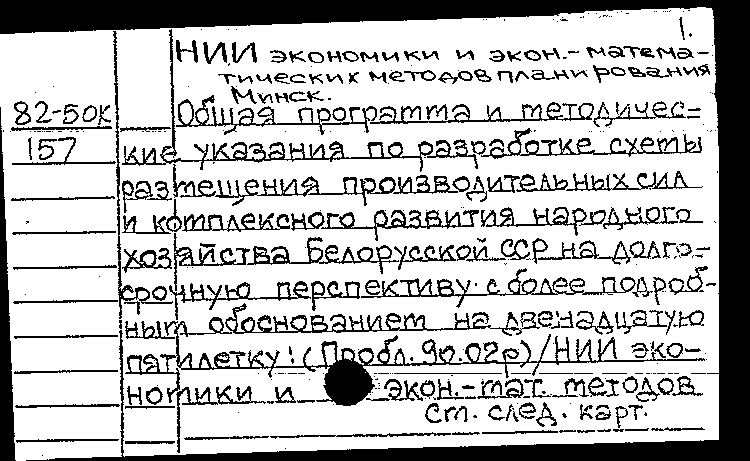 1.
НИИ экономики и экон.-матема-
тических методов планирования
Минск.
82-50К Общая программа и методичес-
157 кие указания по разработке схемы
размещения производительных сил
и комплексного развития народного
хозяйства Белорусской ССР на долго-
срочную перспективу с более подроб-
ным обоснованием на двенадцатую
пятилетку: (Пробл. 90.02р)/НИИ эко-
номики и экон.-мат. методов
См. след. карт.